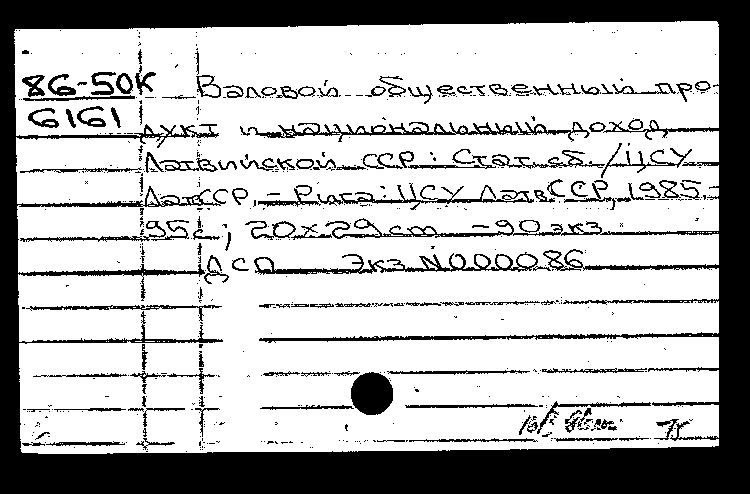 86-50К Валовой общественный про-
6161 дукт и национальный доход
Латвийской ССР: Стат. сб. / ЦСУ
ЛатвССР. – Рига: ЦСУ ЛатвССР, 1985-
95с; 20х29cm -90экз
ДСП Экз N000086